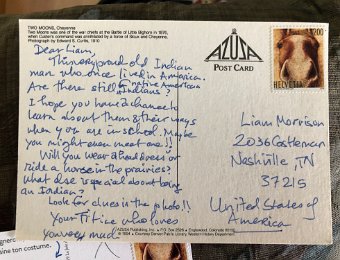 TWO MOONS, Cheyenne
Two Moons was one of the war chiefs at the Battle of Little Bighorn in 1876,
when Custer's command was annihilated by a force of Sioux and Cheyenne.
Photograph by Edward S. Curtis, 1910
AZUSA
POST CARD
HELVETIA
200
Dear Liam,
This very proud old Indian
man who once live in America.
Are there still native American
Indians?
I hope you have a chance to
learn about them & their ways
when you are in school. Maybe
you might even meet one!!
Will you wear a head dress or
ride a horse in the prairies?
What else is special about being
an Indian?
Look for clues in the photo!!
Your Titi who loves
you very much
Liam Morrison
2036 Castleman
Nashville, TN
37215
United States of
America
AZUSA Publishing, Inc. P.O. Box 2526 Englewood, Colorado 80150
© 1994 Courtesy Denver Public Library Western History Department
ignero
aine ton costume.